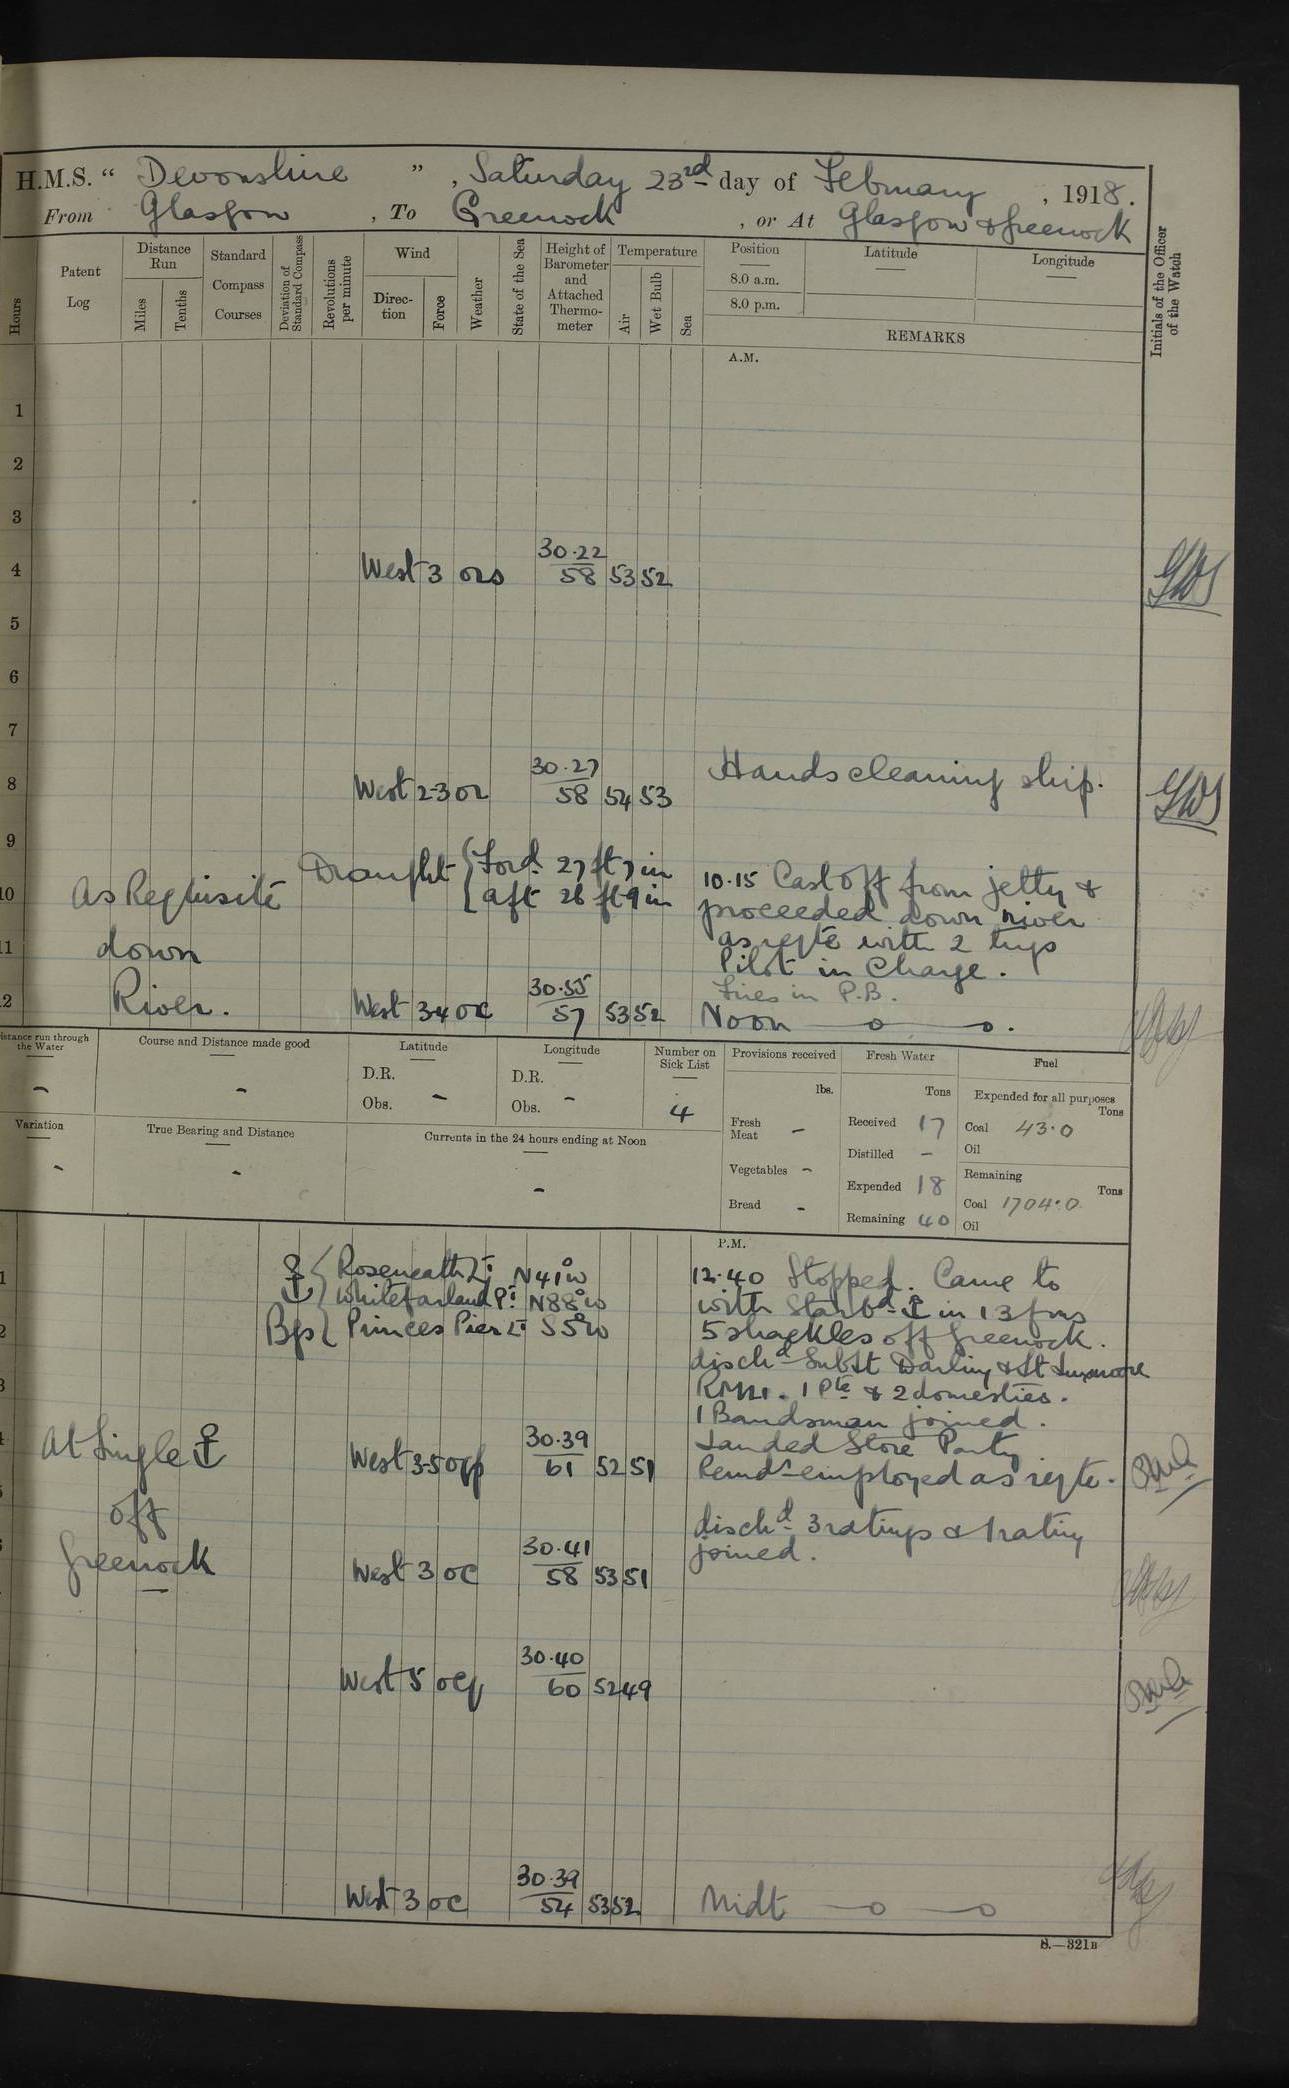 H.M.S. “ Devonshire ” , Saturday 23rd day of February , 1918.
From Glasgow , To Greenock , or At Glasgow & Greenock
Hours
Patent Log
Distance Run
Miles
Tenths
Standard Compass Courses
Deviation of Standard Compass
Revolutions per minute
Wind
Direc-tion
Force
Weather
State of the Sea
Height of Barometer and Attached Thermo-meter
Temperature
Air
Wet Bulb
Sea
Position
8.0 a.m.
8.0 p.m.
Latitude
Longitude
REMARKS
Initials of the Officer of the Watch
A.M.
1
2
3
4 West 3 ors 30.22 58 53 52
5
6
7
8 West 2-3 or 30.27 58 54 53 Hands cleaning ship.
9
Draught { Ford. 27 ft 7 in
10 As Requisite { aft 26 ft 9 in 10.15 Cast off from jetty &
proceeded down river
11 down as reqte with 2 tugs
Pilot in Charge.
Fires in P.B.
12 River. West 3-4 oc 30.35 57 53 52 Noon —o—o.
Distance run through the Water
-
Course and Distance made good
-
Latitude
D.R.
Obs. -
Longitude
D.R.
Obs. -
Number on Sick List
4
Provisions received
lbs.
Fresh Meat -
Vegetables -
Bread -
Fresh Water
Tons
Received 17
Distilled -
Expended 18
Remaining 40
Fuel
Expended for all purposes
Tons
Coal 43.0
Oil
Remaining
Tons
Coal 1704.0
Oil
Variation
-
True Bearing and Distance
-
Currents in the 24 hours ending at Noon
-
P.M.
1 ⚓ { Roseneath Lt N41°W 12.40 Stopped. Came to
Whitefarland Pt N88°W with Starbd ⚓ in 13 fms
2 Bgs { Princes Pier Lt S5°W 5 shackles off Greenock.
dischd Sub Lt Darling & Lt
3 RMLI. 1 Pte & 2 domestics.
1 Bandsman joined.
4 At Single ⚓ West 3-5 oqp 30.39 61 52 51 Landed Store Party
Remdr employed as reqte.
off dischd 3 ratings & 1 rating
Greenock West 3 oc 30.41 58 53 51 joined.
West 5 ocq 30.40 60 52 49
West 3 oc 30.39 54 53 52 Midt —o—o
S.—321B